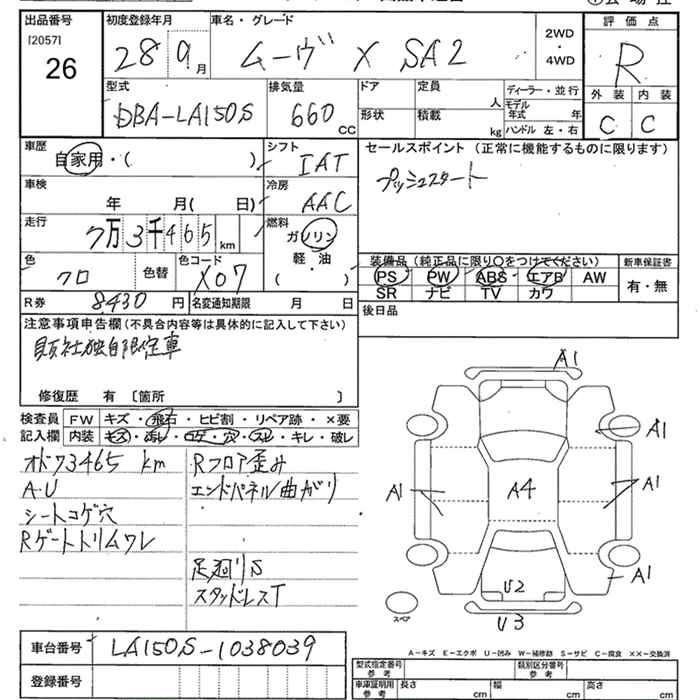 出品番号 初度登録年月 車名・グレード 評価点
[2057]
26 28 9月 ムーヴ X SA2 2WD・4WD R
型式 排気量 ドア 定員 人 ディーラー・並行 外装 内装
DBA-LA150S 660 CC 形状 積載 kg モデル年式 年 C C
ハンドル 左・右
車歴 シフト セールスポイント (正常に機能するものに限ります)
自家用・( ) IAT プッシュスタート
車検 冷房
年 月( 日) AAC
走行 燃料
7万3千465 km ガソリン
軽・油
( )
色 色替 色コード 装備品 (純正品に限り○をつけてください) 新車保証書
クロ X07 PS PW ABS エアB AW 有・無
SR ナビ TV カワ
R券 8430 円 名変通知期限 月 日 後日品
注意事項申告欄 (不具合内容等は具体的に記入して下さい)
販社独自限定車
修復歴 有 [箇所 ]
検査員 FW キズ・飛石・ヒビ割・リペア跡・×要
記入欄 内装 キズ・汚レ・コゲ・穴・スレ・キレ・破レ
オド73465 km Rフロア歪み
A.U エンドパネル曲がり
シートコゲ穴
Rゲートトリムワレ
足廻りS
スタッドレスT
A1
A1
A1 A4 A1
A1
U2
U3
スペア
車台番号 LA150S-1038039
登録番号
A-キズ E-エクボ U-凹み W-補修跡 S-サビ C-腐食 ××-交換済
型式指定番号 参考 類別区分番号 参考
車庫証明用 参考 長さ cm 幅 cm 高さ cm